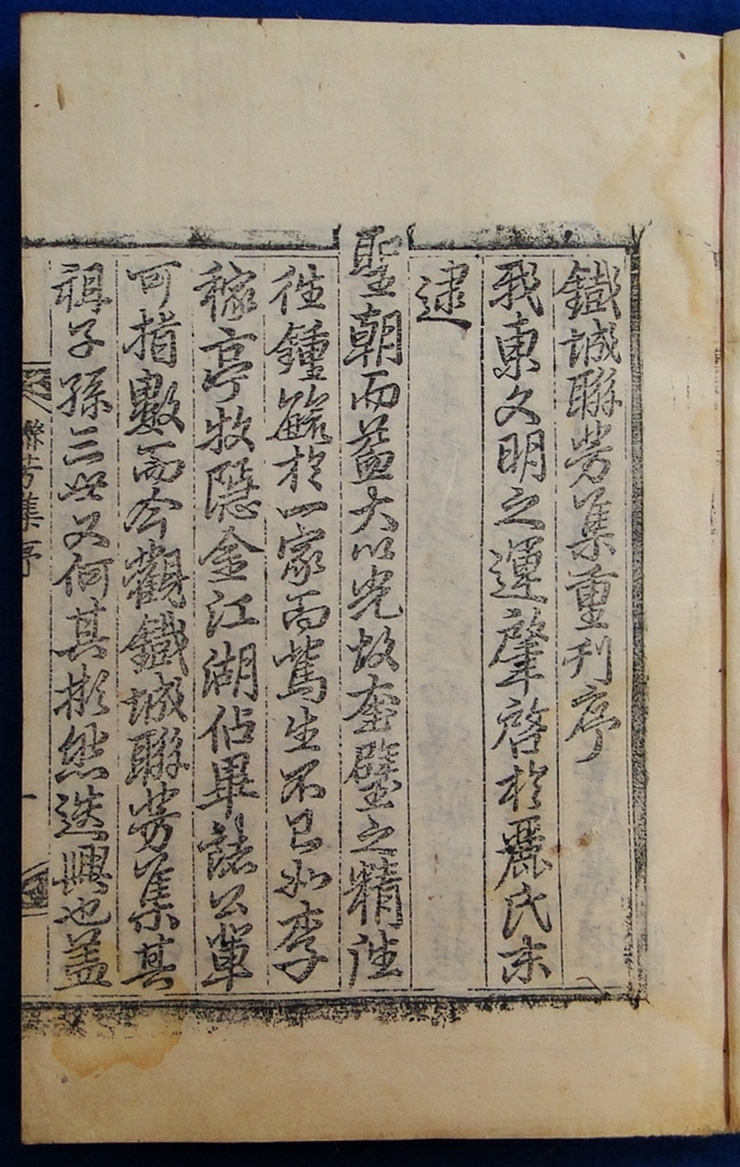 鐵城聯芳集重刊序
我東文明之運肇啓於麗氏末
逮
聖朝而益大以光故奎璧之精往
往鍾毓於一家而篤生不已如李
稼亭牧隱金江湖佔畢諸公軰
可指數而今觀鐵城聯芳集其
祖子孫三世又何其彬然迭興也盖
聯芳集序
一